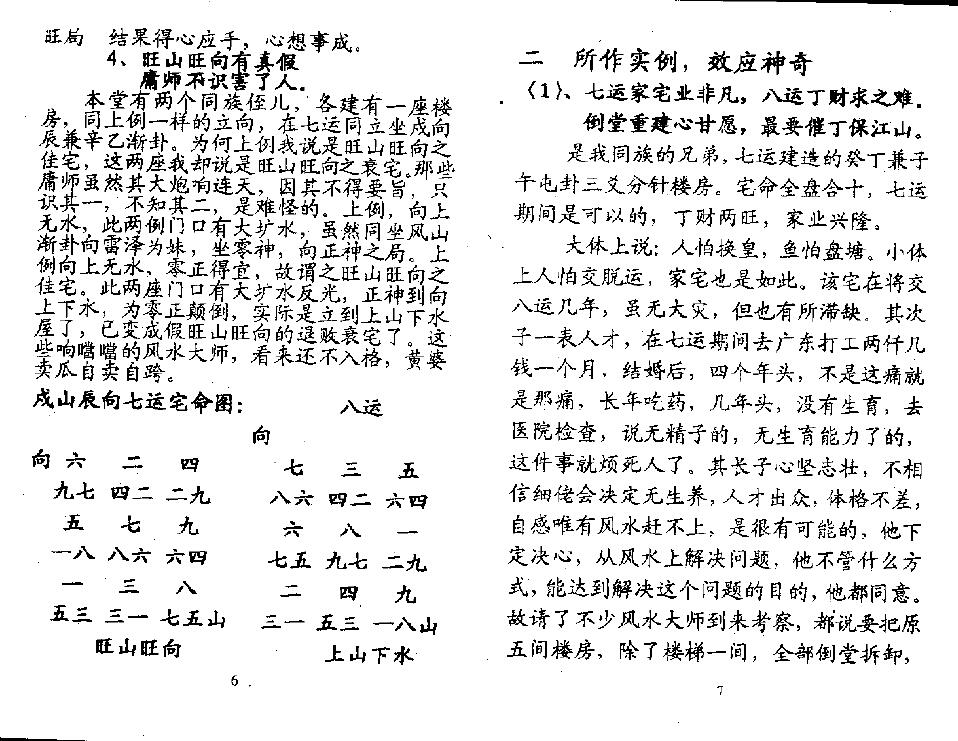 旺局 结果得心应手，心想事成。
4、旺山旺向有真假
庸师不识害了人。
本堂有两个同族侄儿，各建有一座楼
房，同上例一样的立向，在七运同立坐戍向
辰兼辛乙渐卦。为何上例我说是旺山旺向之
住宅，这两座我却说是旺山旺向之衰宅。那些
庸师虽然其大炮响连天，因其不得要旨，只
识其一，不知其二，是难怪的。上例，向上
无水，此两例门口有大圹水，虽然同坐风山
渐卦向雷泽为妹，坐零神，向正神之局。上
例向上无水，零正得宜，故谓之旺山旺向之
住宅。此两座门口有大圹水反光，正神到向
上下水，为零正颠倒，实际是立到上山下水
屋了，已变成假旺山旺向的退败衰宅了。这
些响噹噹的风水大师，看来还不入格，黄婆
卖瓜自卖自跨。
戍山辰向七运宅命图： 八运
向
向 六 二 四 七 三 五
九七 四二 二九 八六 四二 六四
五 七 九 六 八 一
一八 八六 六四 七五 九七 二九
一 三 八 二 四 九
五三 三一 七五山 三一 五三 一八山
旺山旺向 上山下水
6
二 所作实例，效应神奇
（1）、七运家宅业非凡，八运丁财求之难。
倒堂重建心甘愿，最要催丁保江山。
是我同族的兄弟，七运建造的癸丁兼子
午屯卦三爻分针楼房。宅命全盘合十，七运
期间是可以的，丁财两旺，家业兴隆。
大体上说：人怕换皇，鱼怕盘塘。小体
上人怕交脱运，家宅也是如此。该宅在将交
八运几年，虽无大灾，但也有所滞缺。其次
子一表人才，在七运期间去广东打工两仟几
钱一个月，结婚后，四个年头，不是这痛就
是那痛，长年吃药，几年头，没有生育，去
医院检查，说无精子的，无生育能力了的，
这件事就烦死人了。其长子心坚志壮，不相
信细佬会决定无生养，人才出众，体格不差，
自感唯有风水赶不上，是很有可能的，他下
定决心，从风水上解决问题，他不管什么方
式，能达到解决这个问题的目的，他都同意。
故请了不少风水大师到来考察，都说要把原
五间楼房，除了楼梯一间，全部倒堂拆卸，
7